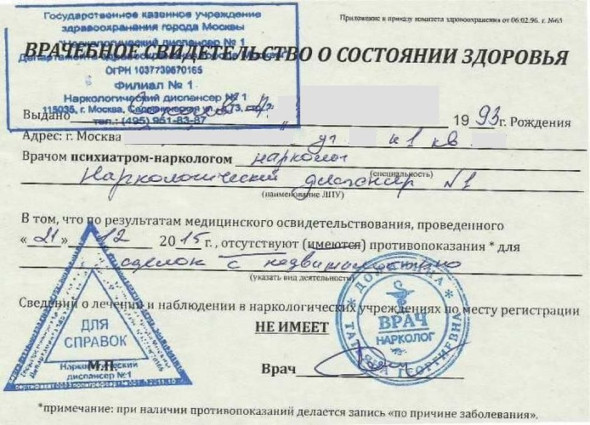 Государственное казенное учреждение
здравоохранения города Москвы
"Наркологический диспансер № 1
Департамента здравоохранения города Москвы"
ОГРН 1037739670165
Филиал № 1
Наркологический диспансер № 1
115035, г. Москва,
тел.: (495) 951-83-87
Приложение к приказу комитета здравоохранения от 06.02.96. г. №63
ВРАЧЕБНОЕ СВИДЕТЕЛЬСТВО О СОСТОЯНИИ ЗДОРОВЬЯ
Выдано 1993г. Рождения
Адрес: г. Москва уг к1 кв.
Врачом психиатром-наркологом нарколог
(специальность)
Наркологический диспансер №1
(наименование ЛПУ)
В том, что по результатам медицинского освидетельствования, проведенного
«21» 12 2015г., отсутствуют (имеются) противопоказания * для
сделок с недвижимостью
(указать вид деятельности)
Сведений о лечении и наблюдении в наркологических учреждениях по месту регистрации
НЕ ИМЕЕТ
ДЛЯ
СПРАВОК
Наркологический
диспансер №1
М.П.
Врач
ВРАЧ
НАРКОЛОГ
ТАТЬЯНА ГЕОРГИЕВНА
*примечание: при наличии противопоказаний делается запись «по причине заболевания».